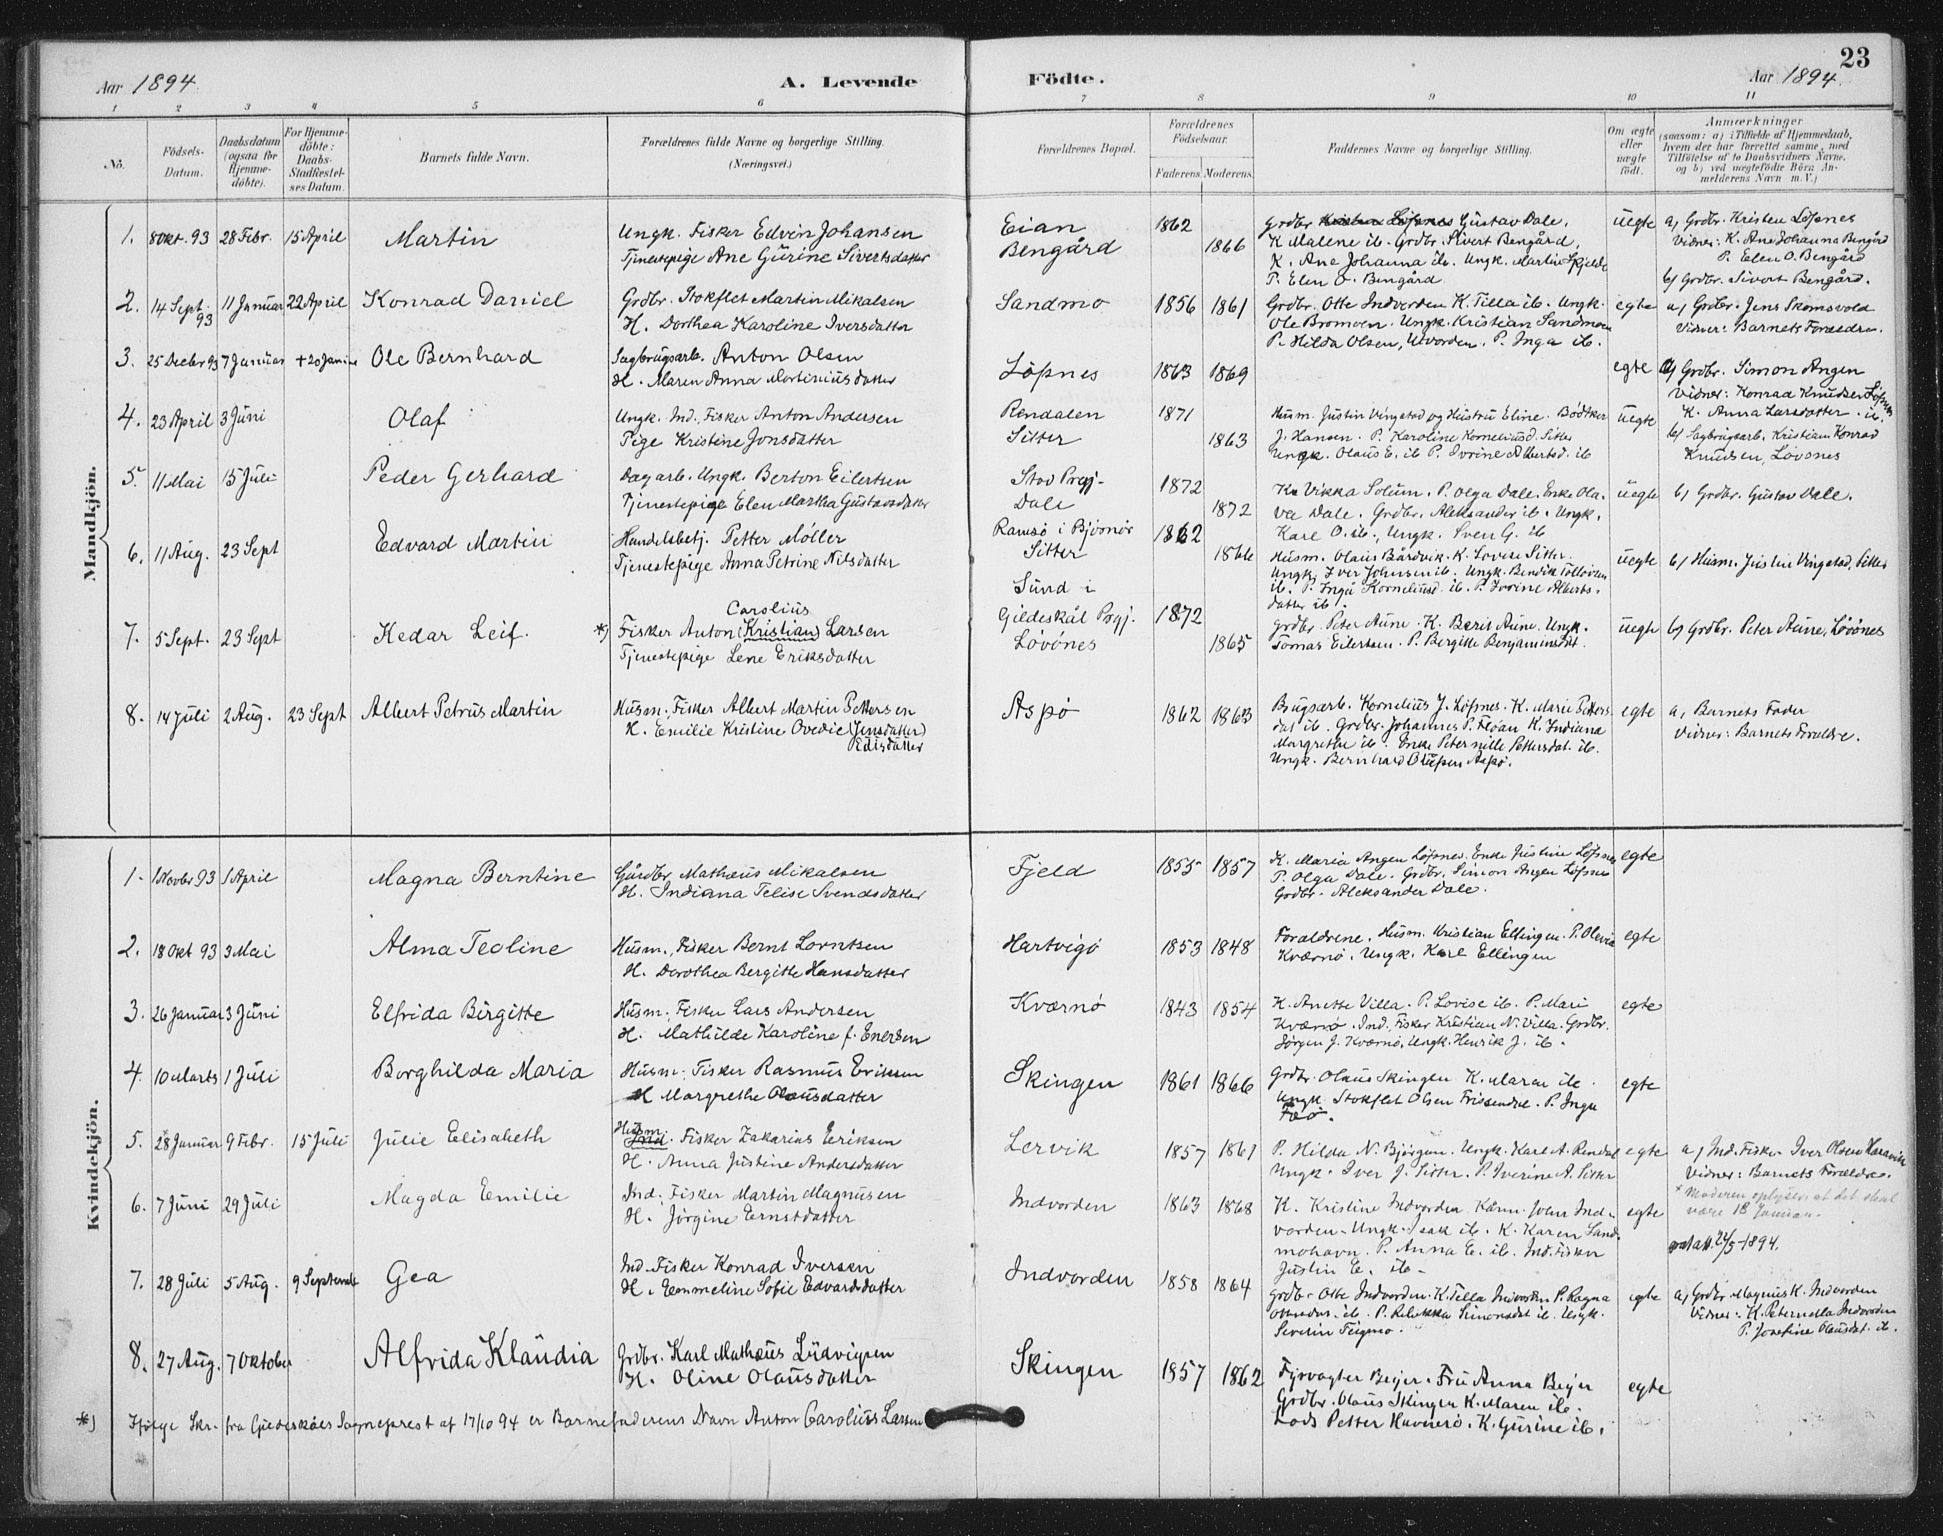 Aar 1894. A. Levende Födte. Aar 1894. 23
1 2 3 4 5 6 7 8 9 10 11
No.
Födsels-Datum.
Daabsdatum (ogsaa for Hjemme-döbte).
For Hjemme-döbte: Daabs-Stadfæstel-ses Datum.
Barnets fulde Navn.
Forældrenes fulde Navne og borgerlige Stilling. (Næringsvei.)
Forældrenes Bopæl.
Forældrenes Födselsaar.
Faderens. Moderens.
Faddernes Navne og borgerlige Stilling.
Om ægte eller uægte födt.
Anmærkninger
(saasom: a) i Tilfælde af Hjemmedaab, hvem der har forrettet samme, med Tilföielse af to Daabsvidners Navne, og b) ved uægtefödte Börn An-melderens Navn m. V.)
Mandkjön.
1. 8 Okt. 93 28 Febr. 15 April Martin
Ungk. Fisker Edvin Johansen
Tjenestepige Ane Gurine Sivertsdatter
Eian
Bengård
1862
1866
Grdbr. Kristen Löfsnes Gustav Dale.
K. Malene ib. Grdbr. Sivert Bengård,
K. Ane Johanna ib. Ungk. Martin Skjelde
P. Elen O. Bengård
uegte
a) Grdbr. Kristen Löfsnes
Vidner: K. Ane Johanna Bengård
P. Elen O. Bengård
b) Grdbr. Sivert Bengård.
2. 14 Sept. 93 11 Januar 22 April Konrad Daniel
Grdbr. Stokflet Martin Mikalsen
H. Dorthea Karoline Iversdatter
Sandmo
1856 1861
Grdbr. Otte Indvorden K. Tilla ib. Ungk.
Ole Bromoen. Ungk. Kristian Sandmoen
P. Hilda Olsen, Utvorden. P. Inga ib.
egte
a) Grdbr. Jens Skomsvold
Vidner: Barnets Forældre.
3. 25 Decbr 93 7 Januar + 20 Januar Ole Bernhard
Sagbrugsarb. Anton Olsen
H. Maren Anna Martiniusdatter
Löfsnes
1863 1869
egte
a) Grdbr. Simon Angen
Vidner: Konrad Knudsen Löfsnes
K. Anna Larsdatter ib.
4. 23 April 3 Juni Olaf
Ungk. Ind. Fisker Anton Andersen
Pige Kristine Jonsdatter
Rendalen
Sitter
1871
1863
Husm. Justin Vingstad og Hustru Eline. Bödtker
J. Hansen. P. Karoline Korneliusd. Sitter
Ungk. Olaus E. ib P. Ivrine Albertsd. ib
uegte
b) Sagbrugsarb. Kristian Konrad
Knudsen, Lövsnes
5. 11 Mai 15 Juli Peder Gerhard
Dagarb. Ungk. Berton Eilertsen
Tjenestepige Elen Martha Gustavsdatter
Stov Prgj.
Dale
1872
1872
K. Vikka Solum. P. Olga Dale. Enke Ola-
va Dale. Grdbr. Aleksander ib. Ungk.
Karl O. ib., Ungk. Sven G. ib
uegte
b) Grdbr. Gustav Dale.
6. 11 Aug. 23 Sept Edvard Martin
Handelsbetj. Petter Möller
Tjenestepige Anna Petrine Nilsdatter
Ramsö i Bjövnör
Sitter
1862
1866
Husm. Olaus Bårdvik. K. Lovise Sitter.
Ungk. Iver Johnsen ib. Ungk. Bendik Tollevsen
ib. P. Inga Korneliusd. ib. P. Ivrine Alberts-
datter ib.
uegte
b) Husm. Justin Vingstad, Sitter
7. 5 Sept. 23 Sept Kedar Leif.
*) Fisker Anton (Kristian) Carolius Larsen
Tjenestepige Lene Eriksdatter
Sund i
Gildeskål Prgj.
Lövönes
1872
1865
Grdbr. Peter Aune. K. Berit Aune. Ungk.
Tomas Eilertsen. P. Bergitte Benjaminsdat.
uegte
b) Grdbr. Peter Aune, Lövönes
8. 14 Juli 2 Aug. 23 Sept Albert Petrus Martin
Husm. Fisker Albert Martin Pettersen
H. Emilie Kristine Ovedie (Jensdatter)
Edisdatter
Aspö
1862 1863
Brugsarb. Kornelius J. Löfsnes. K. Marie Petters-
dat ib. Grdbr. Johannes P. Flöan K. Indiana
Margrethe ib. Enke Peternille Pettersdat. ib.
Ungk. Bernhard Olufsen Aspö.
egte
a, Barnets Fader
Vidner: Barnets Forældre.
Kvindekjön.
1. 1 Novbr 93 1 April Magna Berntine
Gårdbr Mathæus Mikalsen
H. Indiana Telise Svendsdatter
Fjeld
1855 1857
K. Maria Angen Löfsnes. Enke Justine Löfsnes
P. Olga Dale. Grdbr. Simon Angen Löfsnes
Grdbr. Aleksander Dale.
egte
2. 18 Okt 93 3 Mai Alma Teoline
Husm., Fisker Bernt Lorntsen
H. Dorothea Bergitte Hansdatter
Hartvigö
1853 1848
Forældrene. Husm. Kristian Ellingen. P. Olevia
Kværnö. Ungk. Karl Ellingen
egte
3. 26 Januar 3 Juni Elfrida Birgitte
Husm. Fisker Lars Andersen
H. Mathilde Karoline f. Enersen
Kværnö
1843 1854
K. Anette Villa. P. Lovise ib. P. Mari
Kværnö. Ind. Fisker Kristian N. Villa. Grdbr.
Jörgen J. Kværnö, Ungk. Henrik J. ib.
egte
4. 10 Marts 1 Juli Borghilda Maria
Husm. Fisker Rasmus Eriksen
H Margrethe Olausdatter
Skingen
1861 1866
Grdbr. Olaus Skingen K. Maren ib.
Ungk. Stokflet Olsen Frisendal. P. Inga
Faö.
egte
5. 28 Januar* 9 Febr. 15 Juli Julie Elisabeth
Husm. Ind. Fisker Zakarias Eriksen
H. Anna Justine Andersdatter
Lervik
1857 1861
P. Hilda N. Björgum. Ungk. Karl A. Rendal
Ungk. Iver J. Sitter. P. Iverine A. Sitter
egte
a) Ind. Fisker Iver Olsen Haravik
Vidner: Barnets Forældre.
* Moderen oplyser, at det skal
være 18 Januar.
6. 7 Juni 29 Juli Magda Emilie
Ind. Fisker Martin Magnusen
H. Jörgine Ernstdatter
Indvorden
1863 1868
K. Kristine Indvorden Kårm. Joen Ind-
vorden. Ungk. Isak ib. K. Karen Sand-
mohavn. P. Anna E. ib. Ind. Fisker
Justin E. ib.
egte
att. 24/5-1894.
7. 28 Juli 5 Aug. 9 September Gea
Ind. Fisker Konrad Iversen
H. Emmeline Sofie Edvardsdatter
Indvorden
1858 1864
Grdbr. Otte Indvorden. K. Tilla Indvorden P. Ragna
ib. P. Rebekka Simonsdat ib. Ungk.
Severin Teigmo.
egte
a) Grdbr Magnus K. Indvorden
Vidner: K. Peternella Indvorden
P. Josefine Olausdat. ib.
8. 27 Aug. 7 Oktober Alfrida Klaudia
Grdbr. Karl Mathæus Ludvigsen
H. Oline Olausdatter
Skingen
1857 1862
Fyrvogter Beijer. Fru Anna Beijer
Grdbr. Olaus Skingen K. Maren ib.
Lods Petter Havnerö. K. Gurine ib.
egte
*) Ifølge Skr. fra Gildeskåls Sogneprest af 17/10 94 er Barnefaderens Navn Anton Carolius Larsen